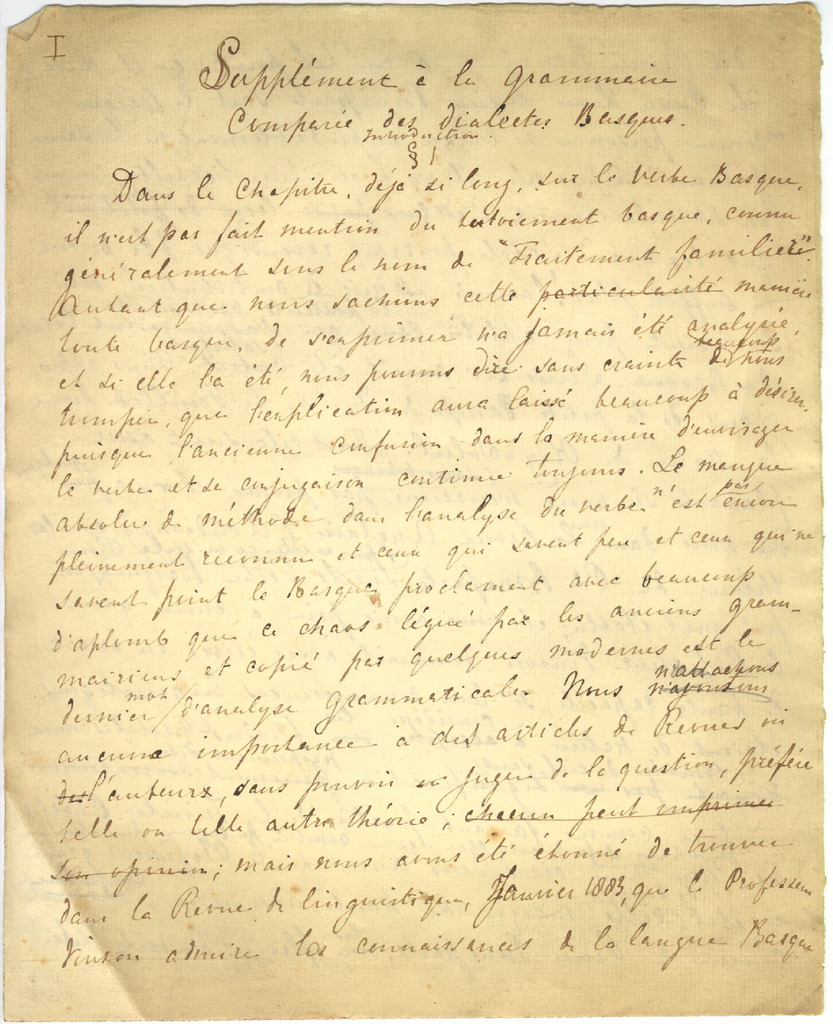 I
Supplément à la grammaire
Comparée des dialectes Basques.
Introduction.
§ 1
Dans le Chapitre, déjà si long, sur le verbe Basque,
il n'est pas fait mention du tutoiement basque, connu
généralement sous le nom de "Traitement familier".
Autant que nous sachions cette particularité manière
toute basque, de s'exprimer n'a jamais été analysée,
et si elle l'a été, nous pouvons dire sans crainte de nous
beaucoup
tromper, que l'explication aura laissé beaucoup à désirer,
puisque l'ancienne confusion dans la manière d'envisager
le verbe et sa conjugaison continue toujours. Le manque
absolu de méthode dans l'analyse du verbe n'est pas encore
pleinement reconnu et ceux qui savent peu et ceux qui ne
savent point le Basque proclament avec beaucoup
d'aplomb que ce chaos légué par les anciens gram-
mairiens et copié par quelques modernes est le
dernier mot d'analyse grammaticale. Nous n'attachons
n'ajoutons
aucune importance à des articles de Revues où
des l'auteurx, sans pouvoir en juger de la question, préfère
telle ou telle autre théorie; chacun peut imprimer
son opinion; mais nous avons été étonné de trouver
dans la Revue de linguistique, Janvier 1883, que le Professeur
Vinson admire les connaissances de la langue Basque